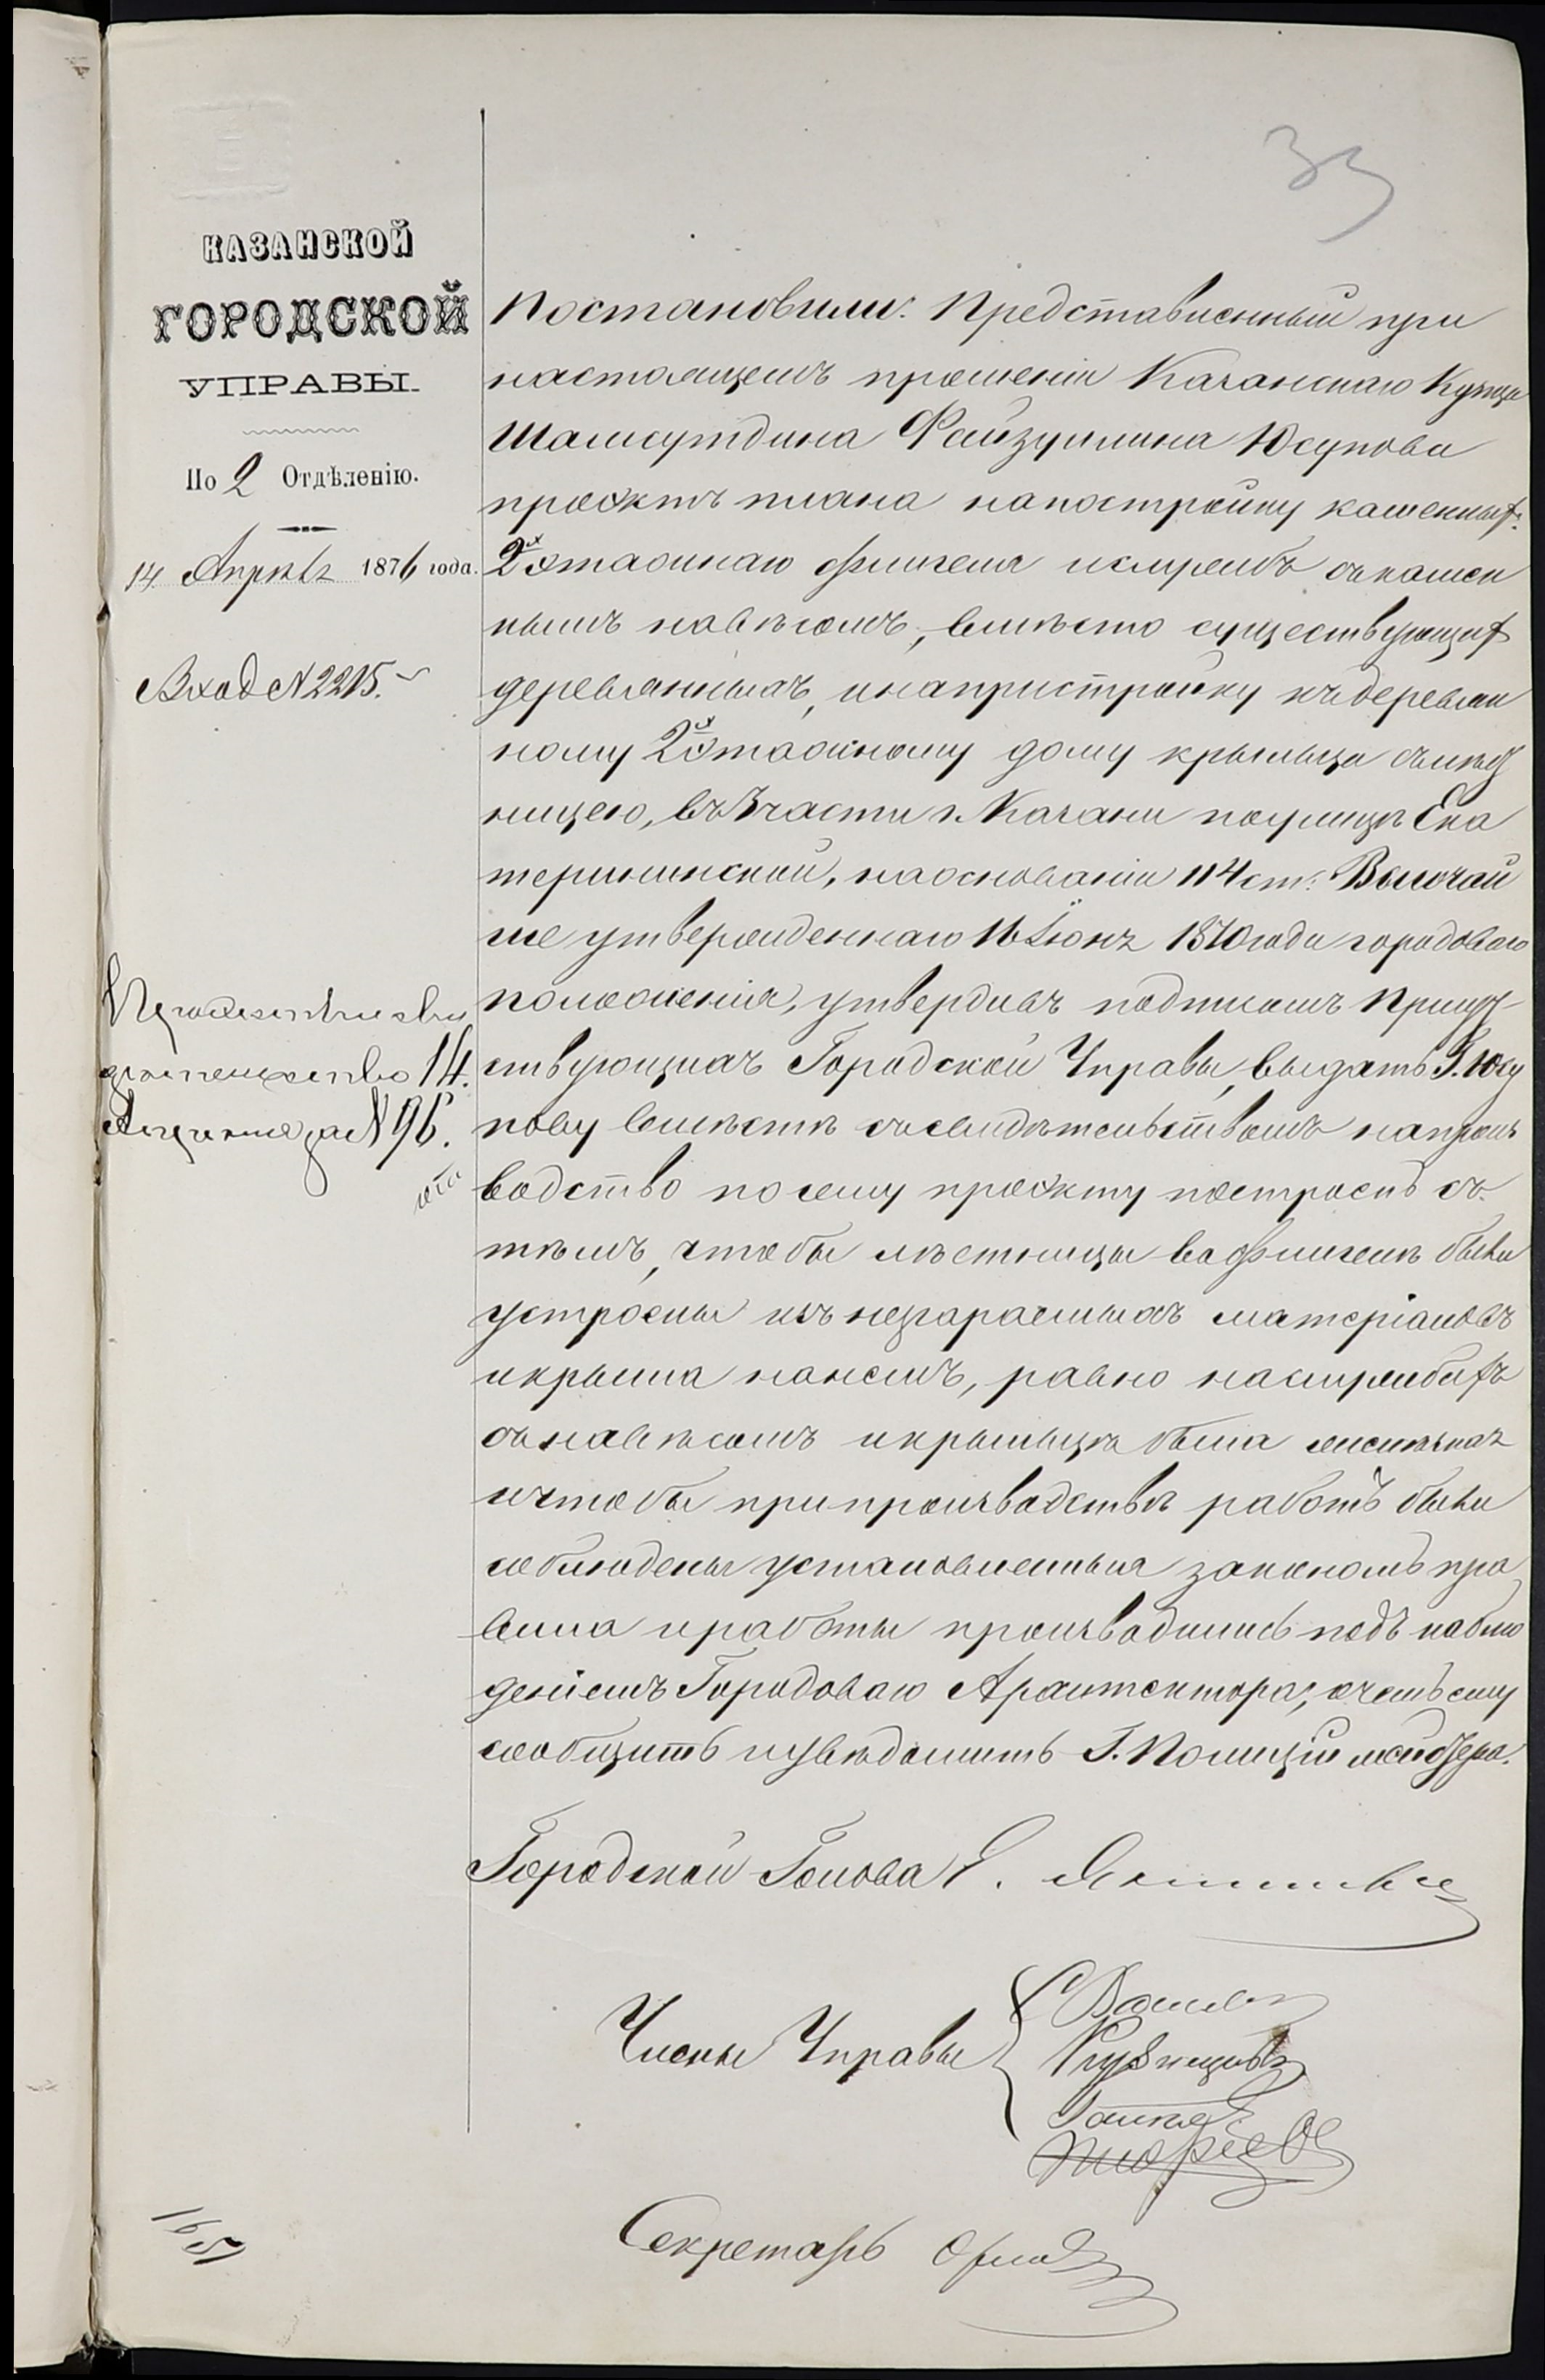 33
КАЗАНСКОЙ
ГОРОДСКОЙ
УПРАВЫ
По 2 Отдѣленію.
14 Апрѣля 1876 года.
Вход N 2215.
Постановили: Представленный при
настоящемъ прошеніи Казанскаго Купца
Шамсутдина Файзуллина Юсупова
проэктъ плана на постройку каменныхъ:
2хъ этажнаго флигеля и службъ съ камен
нымъ навѣсомъ, вмѣсто существующихъ
деревянныхъ, и на пристройку къ деревян
ному 2хъ этажному дому крыльца съ лѣст
ницею, въ 3 части г. Казани по улицѣ Ека
терининской, на основаніи 114 ст. Высочай
ше утвержденнаго 16 Іюня 1870 года городоваго
положенія, утвердивъ подписомъ Присут
ствующихъ Городской Управы, выдать Г. Юсу
пову вмѣстѣ съ свидѣтельствомъ на произ
водство по сему проэкту построекъ съ
тѣмъ, чтобы лѣстницы во флигелѣ были
устроены изъ незгараемыхъ матеріаловъ
и крыша на немъ, равно на службахъ
съ навѣсомъ и крыльцѣ была желѣзная
и чтобы при производствѣ работъ были
соблюдены установленныя закономъ пра
вила и работы производились подъ наблю
деніемъ Городоваго Архитектора, о чемъ ему
сообщить и увѣдомить Г. Полиціймейстера.
14.
за N 96.
Городской Голова Е.
Члены Управы
Кузнецовъ
Секретарь